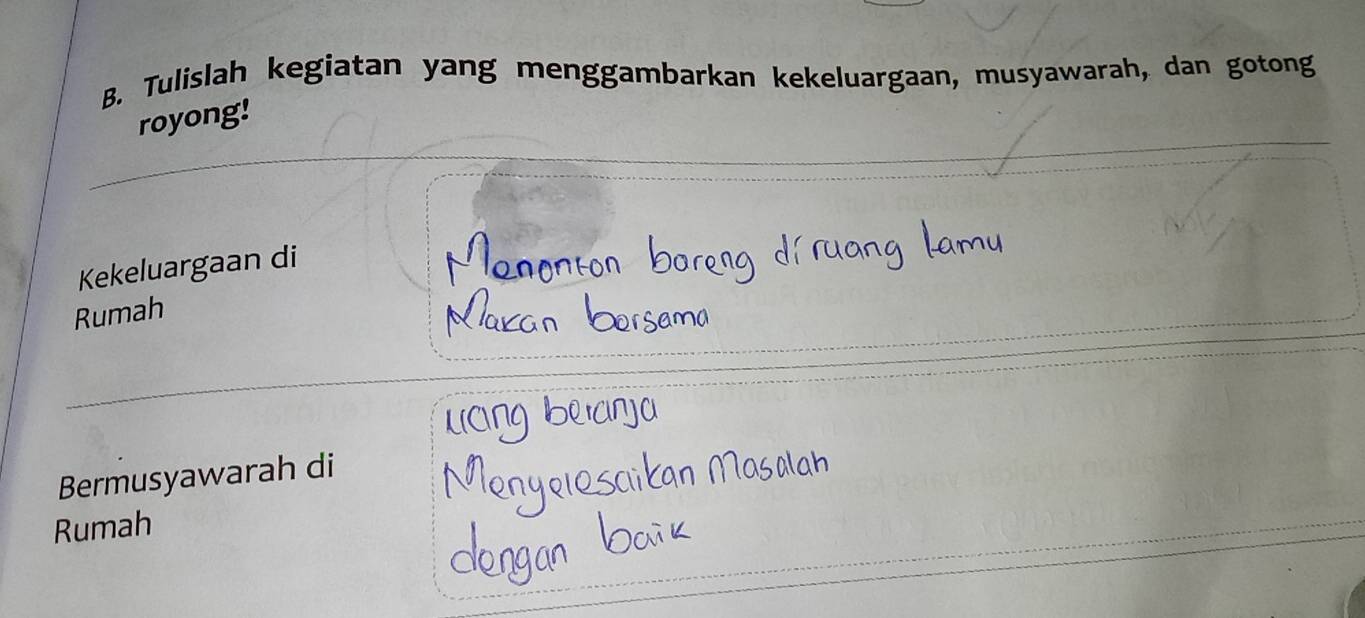 B. Tulislah kegiatan yang menggambarkan kekeluargaan, musyawarah, dan gotong
royong!
Kekeluargaan di
Rumah
Menonton bareng diruang tamu
Makan bersama
Bermusyawarah di
Rumah
uang belanja
Menyelesaikan Masalah
dengan baik